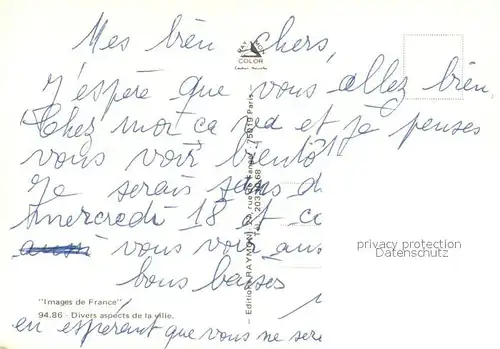 Mes bien chers,
RAYMON
COLOR
J'espère que vous allez bien.
Chez moi ça va et je penses
vous voir bientôt
Je serais sans d
mercredi 18 et c
aussi vous voir aus
bons baises
"Images de France"
94.86 - Divers aspects de la ville.
en espérant que vous ne sere
Editions RAYMON 75019 Paris
privacy protection
Datenschutz